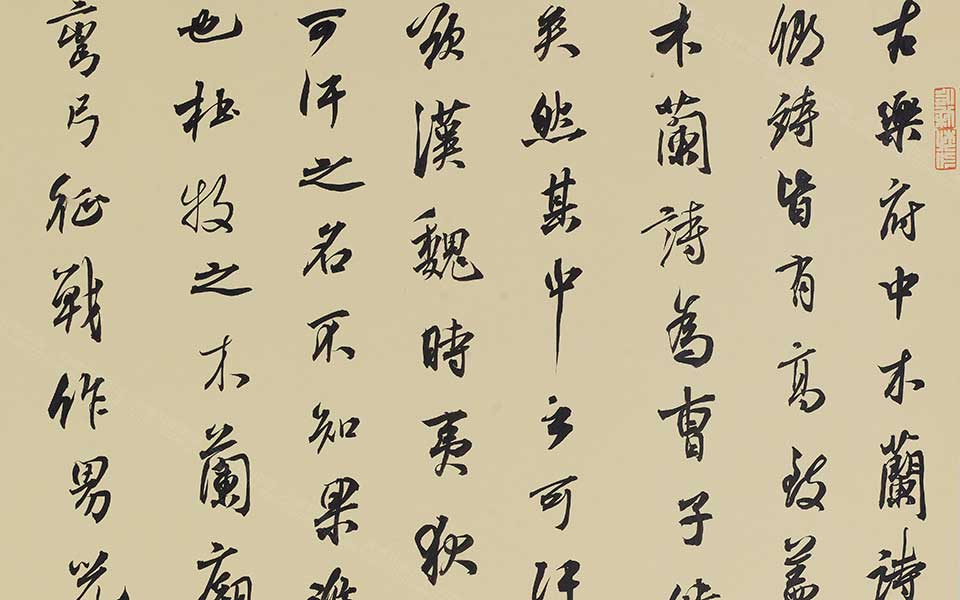 古樂府中木蘭詩
卿詩皆有高致蓋
木蘭詩為曹子
矣然其中云可汗
欲漢魏時夷狄
可汗之名不知果誰
也杜牧之木蘭廟
彎弓征戰作男兒